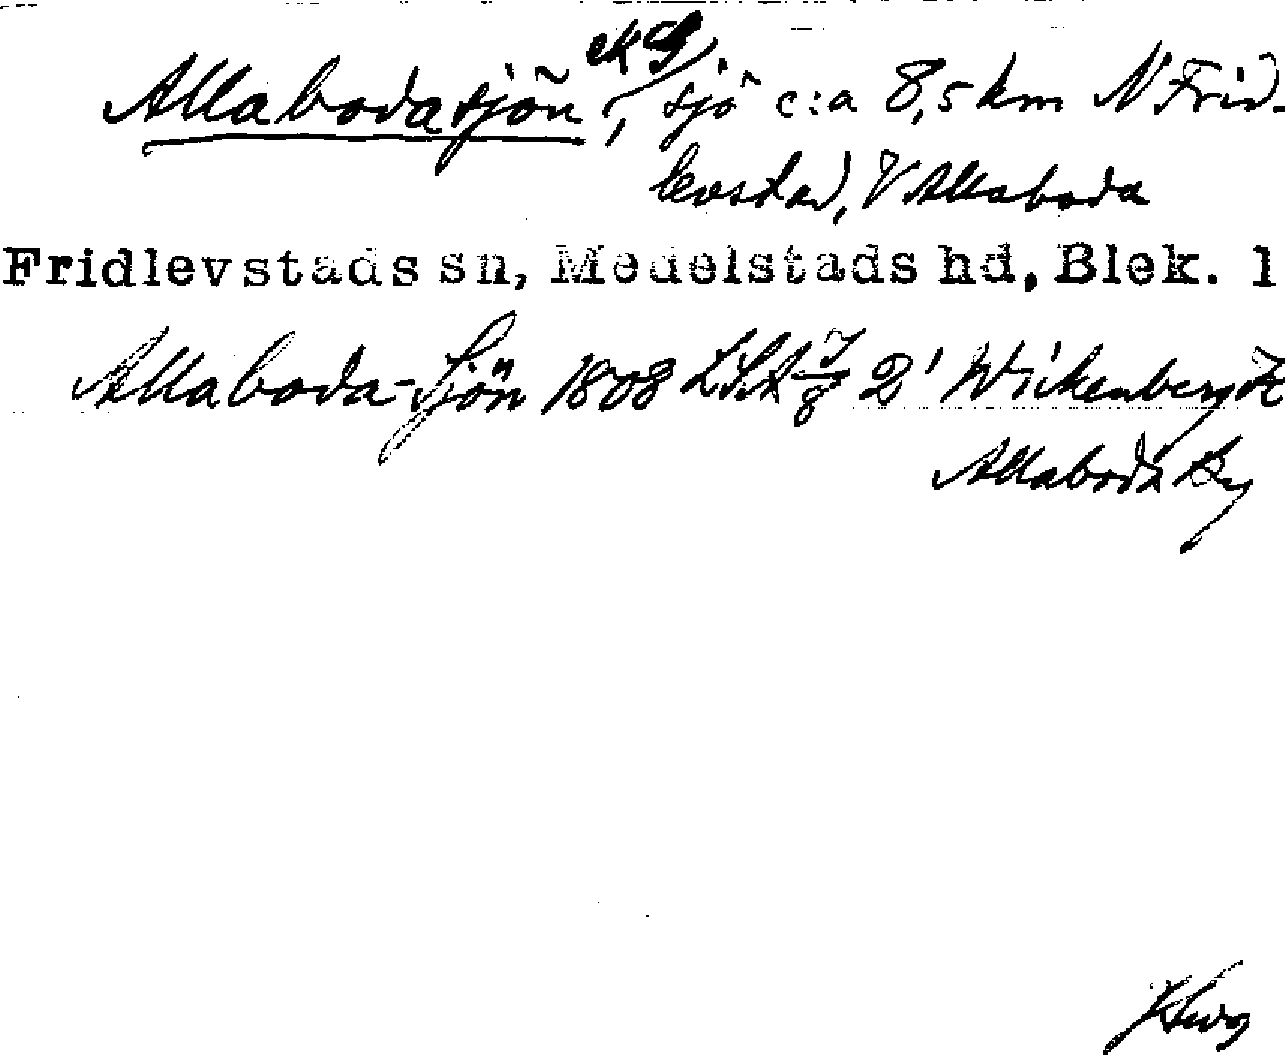 Allabodasjön, ek S sjö c:a 8,5 km N Frid-
levstad, V Allaboda
Fridlevstads sn, Medelstads hd, Blek. l
Allaboda-Sjön 1808 LSA 7/8 2' Wickenberg K
Allaboda By